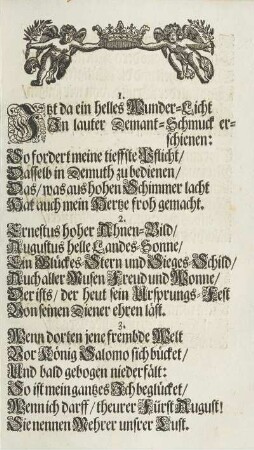 1.
Itzt da ein helles Wunder-Licht
In lauter Demant-Schmuck er-
schienen:
So fordert meine tieffste Pflicht/
Dasselb in Demuth zu bedienen/
Das/ was aus hohen Schimmer lacht
Hat auch mein Hertze froh gemacht.
2.
Ernestus hoher Ahnen-Bild/
Augustus helle Landes-Sonne/
Ein Glückes-Stern und Sieges-Schild/
Auch aller Musen Freud und Wonne/
Der ists/ der heut sein Ursprungs-Fest
Von seinen Diener ehren läst.
3.
Wenn dorten jene frembde Welt
Vor König Salomo sich bücket/
Und bald gebogen niederfält:
So ist mein gantzes Ich beglücket/
Wenn ich darff/ theurer Fürst August!
Sie nennen Mehrer unsrer Lust.